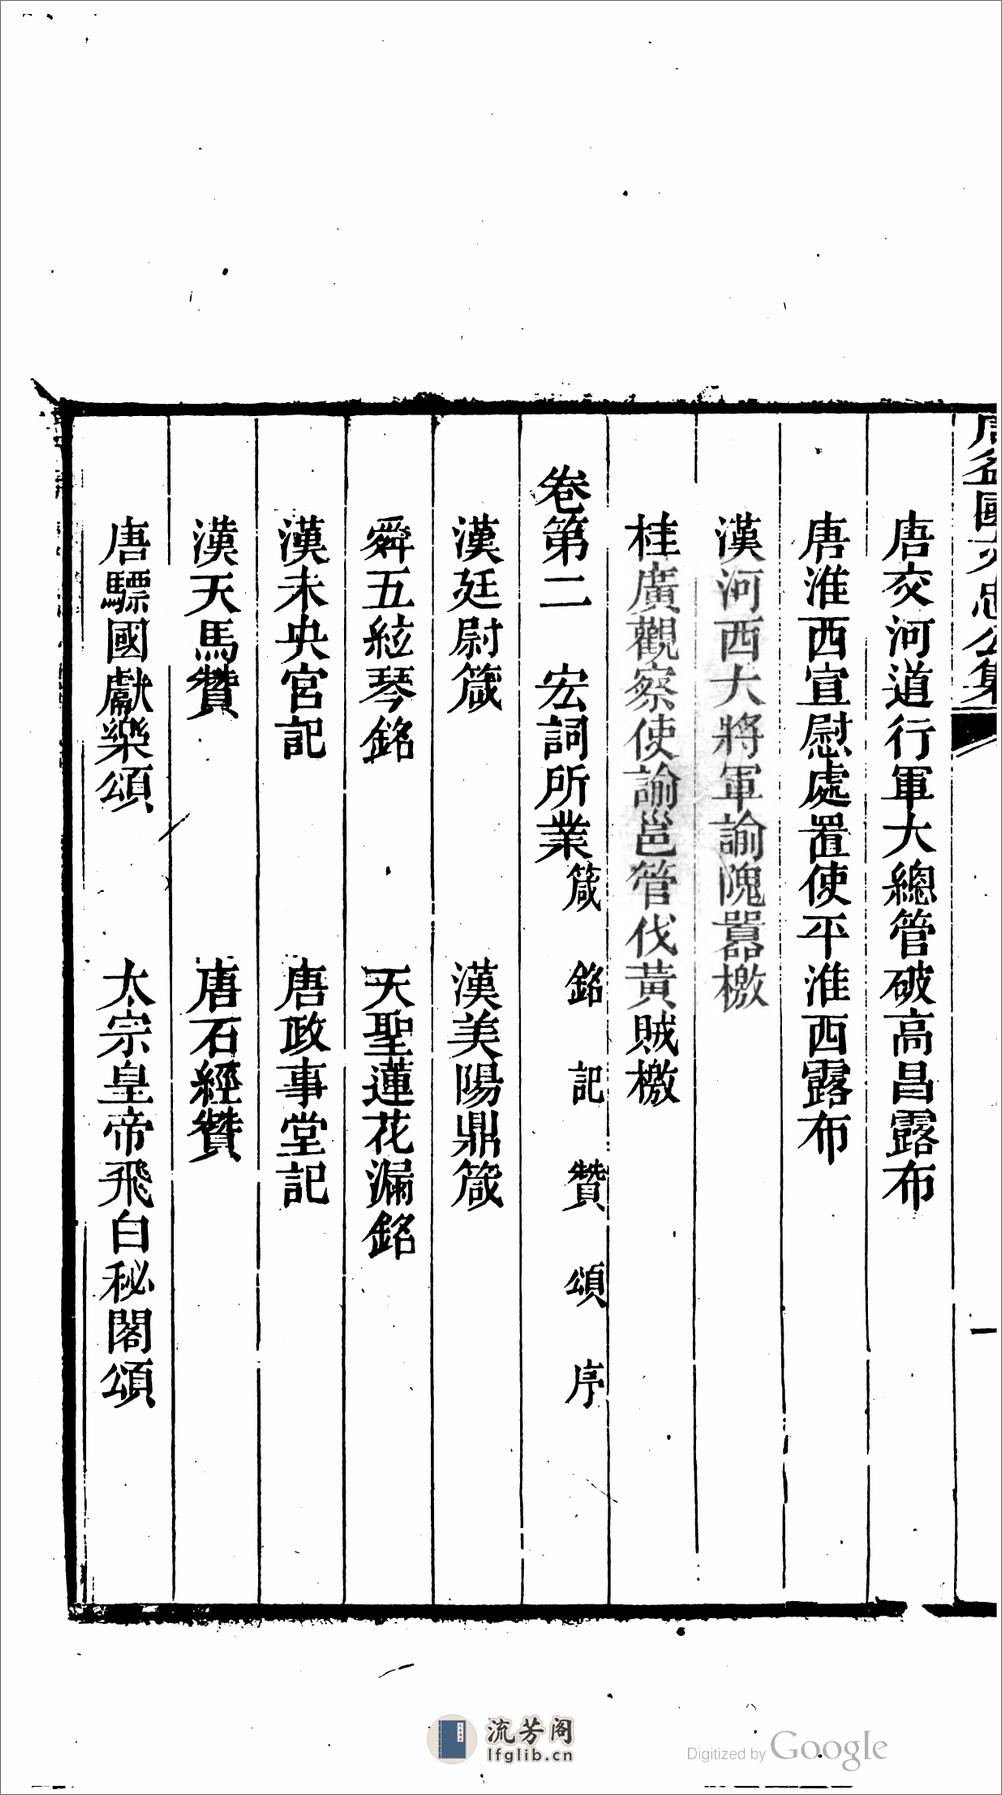 周益國文忠公集
一
唐交河道行軍大總管破高昌露布
唐淮西宣慰處置使平淮西露布
漢河西大將軍諭隗囂檄
桂廣觀察使諭邕管伐黃賊檄
卷第二　宏詞所業箴　銘　記　贊　頌　序
漢廷尉箴　漢美陽鼎箴
舜五絃琴銘　天聖蓮花漏銘
漢未央宮記　唐政事堂記
漢天馬贊　唐石經贊
唐驃國獻樂頌　太宗皇帝飛白秘閣頌
流芳阁
lfglib.cn
Digitized by Google